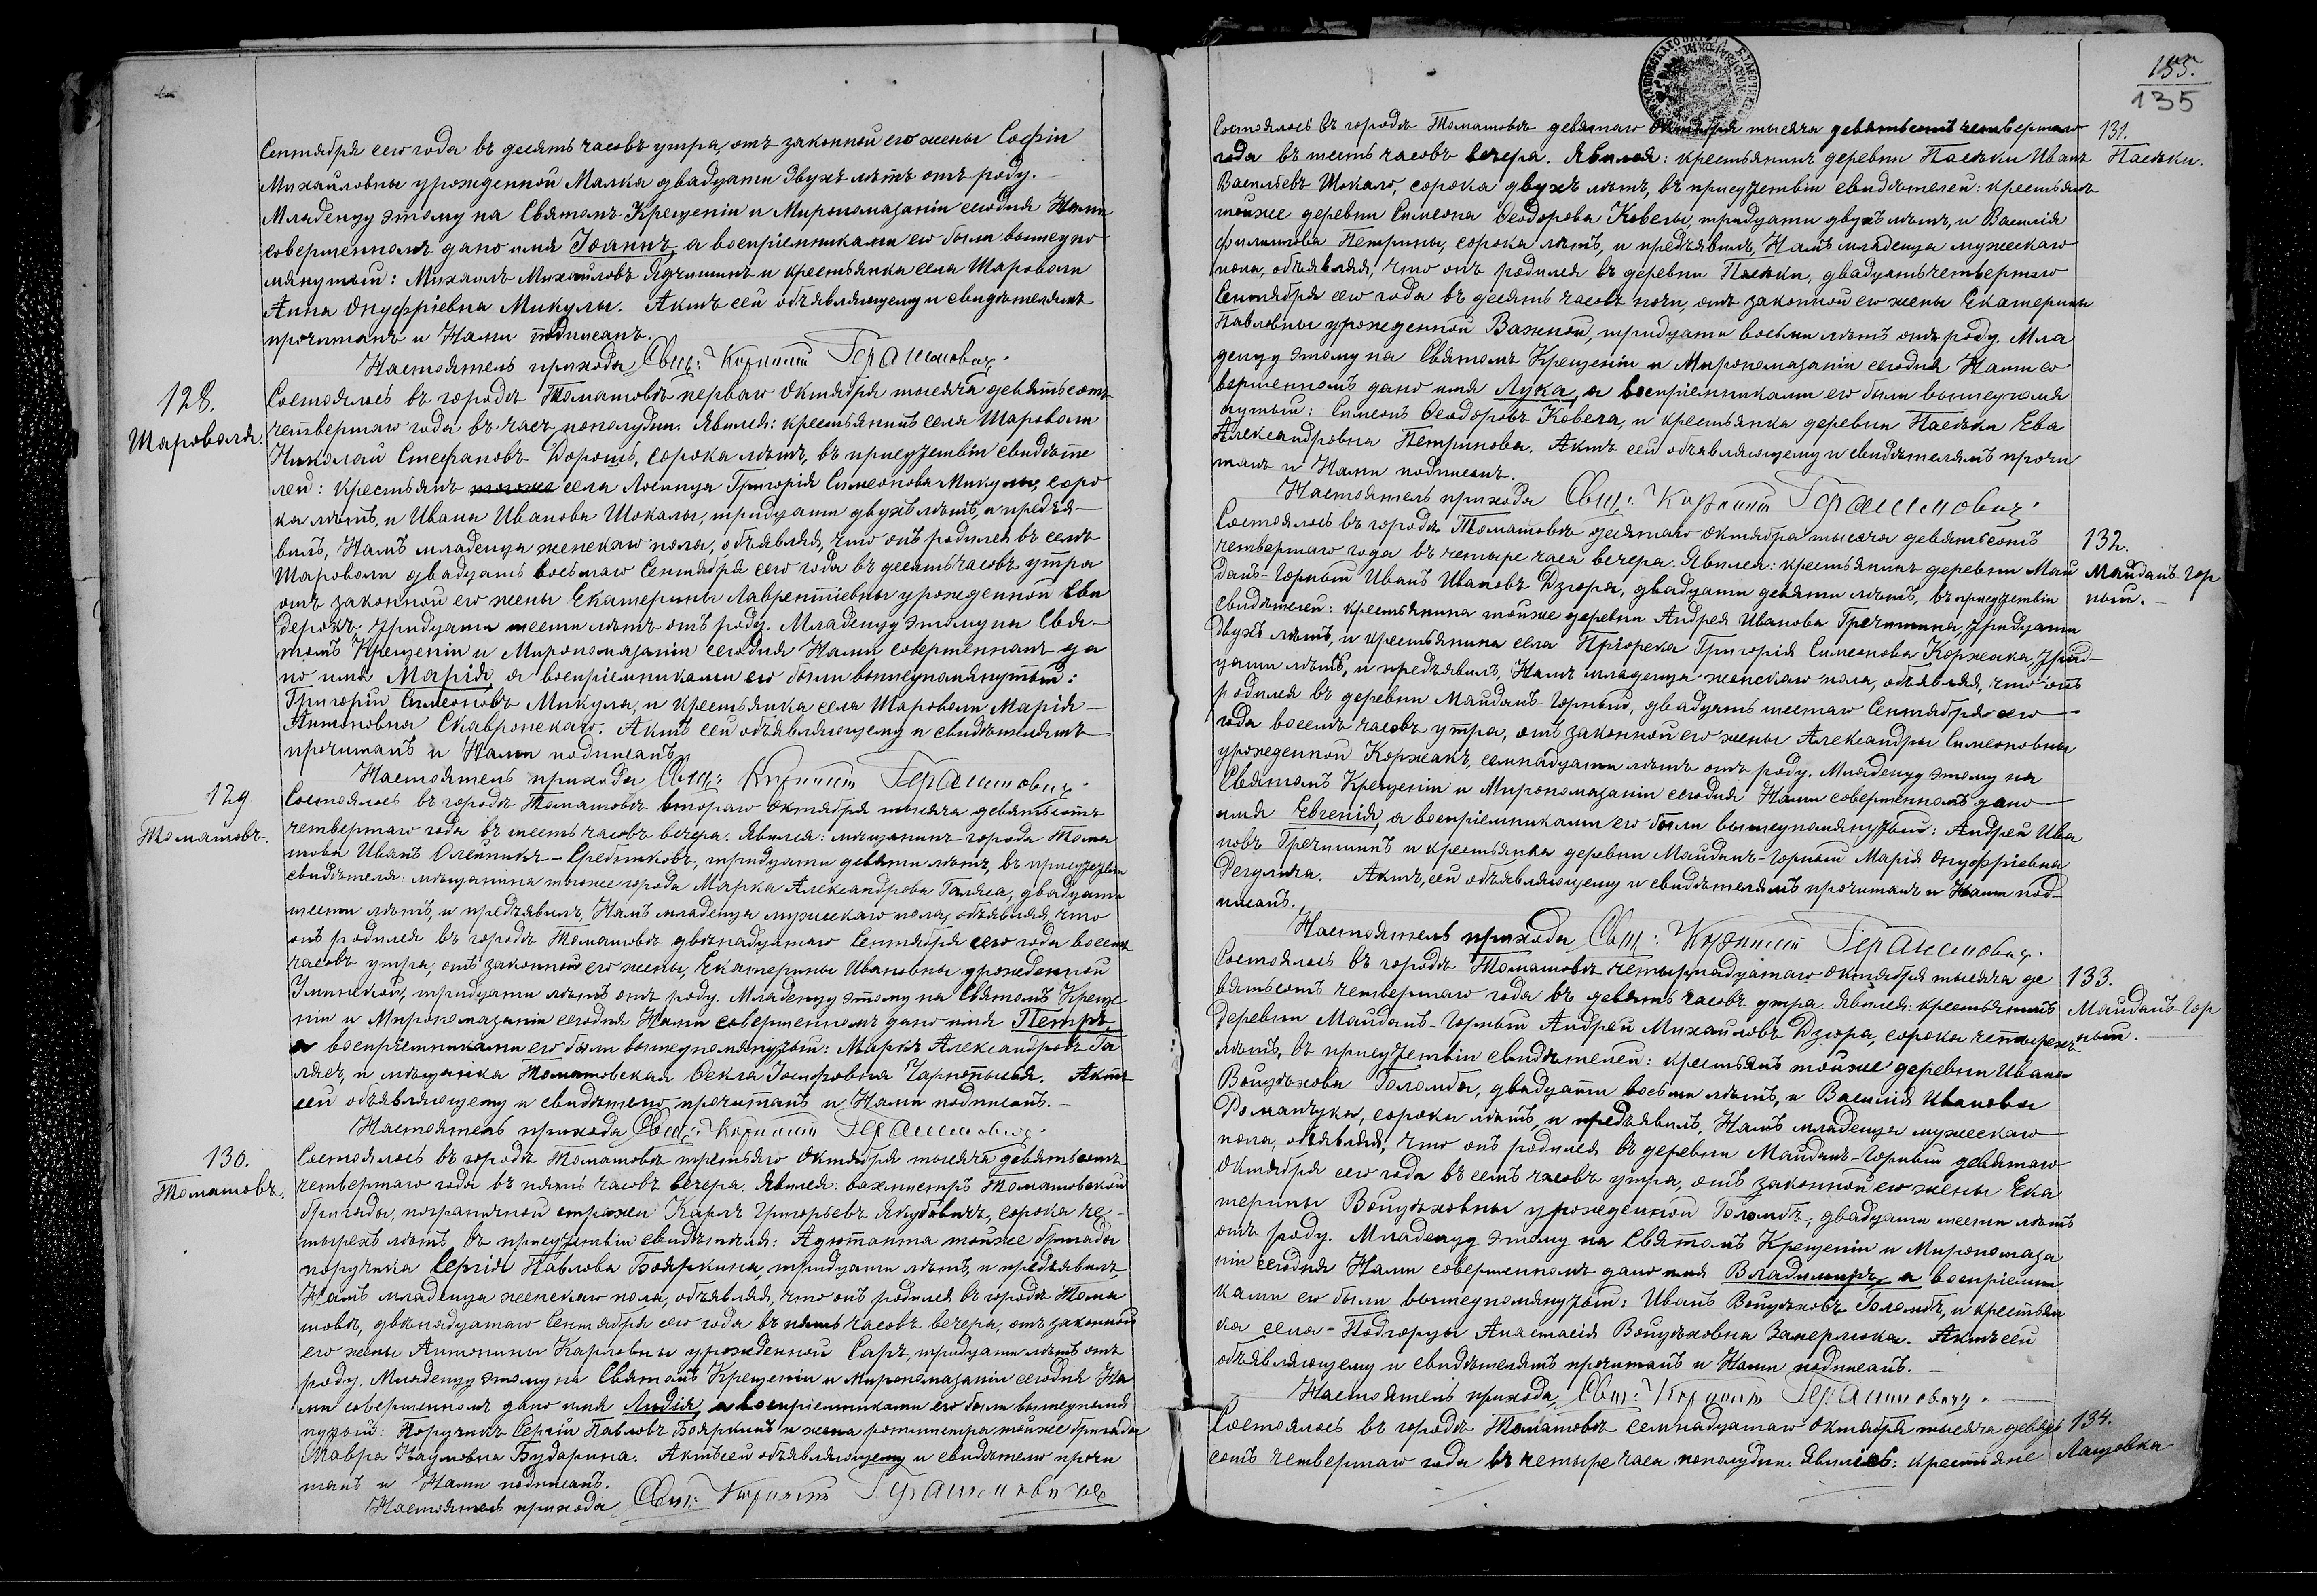 Сентября сего года въ десять часовъ утра, отъ законной его жены Софіи
Михайловны урожденной Малка двадцати двухъ лѣтъ отъ роду.
Младенцу этому на Святомъ Крещеніи и Миропомазаніи сегодня Нами
совершенномъ дано имя Іоаннъ, а воспріемниками его были вышеупо
мянутый: Михаилъ Михайловъ и крестьянка села Шароволя
Анна Онуфріевна Микулы. Актъ сей объявляющему и свидѣтелямъ
прочитанъ и Нами подписанъ.
Настоятель прихода Свящ: Корнилій Герасимовичъ.
128.
Шароволя.
Состоялось въ городѣ Томашовѣ перваго Октября тысяча девятьсотъ
четвертаго года въ часъ пополудни. Явился: крестьянинъ села Шароволи
Николай Стефановъ Дорошъ, сорока лѣтъ, въ присутствіи свидѣте
лей: крестьянъ села Лосинца Григорія Симеонова Микулы, соро
ка лѣтъ, и Ивана Иванова Шокалы, тридцати двухъ лѣтъ, и предъя-
вилъ, Намъ младенца женскаго пола, объявляя, что онъ родился въ селѣ
Шароволи двадцать восьмаго Сентября сего года въ десять часовъ утра
отъ законной его жены Екатерины Лаврентіевны урожденной Сви
дерокъ, тридцати шести лѣтъ отъ роду. Младенцу этому на Свя-
томъ Крещеніи и Миропомазаніи сегодня Нами совершенномъ да
но имя Марія, а воспріемниками его были вышеупомянутый:
Григорій Симеоновъ Микула, и крестьянка села Шароволи Марія
Антоновна Скавронскаго. Актъ сей объявляющему и свидѣтелямъ
прочитанъ и Нами подписанъ.
Настоятель прихода Свящ: Корнилій Герасимовичъ.
129.
Томашовъ.
Состоялось въ городѣ Томашовѣ втораго Октября тысяча девятьсотъ
четвертаго года въ шесть часовъ вечера. Явился: мѣщанинъ города Тома
шова Иванъ Олейникъ-Сребниковъ, тридцати девяти лѣтъ, въ присутствіи
свидѣтеля: мѣщанина тогоже города Марка Александрова Галяса, двадцати
шести лѣтъ, и предъявилъ, Намъ младенца мужескаго пола, объявляя, что
онъ родился въ городѣ Томашовѣ двѣнадцатаго Сентября сего года восемь
часовъ утра, отъ законной его жены, Екатерины Ивановны урожденной
тридцати лѣтъ отъ роду. Младенцу этому на Святомъ Креще
ніи и Миропомазаніи сегодня Нами совершенномъ дано имя Петръ,
а воспріемниками его были вышеупомянутый: Маркъ Александровъ Га
лясъ, и мѣщанка Томашовская Ѳекла Іосифовна Чарнопысья. Актъ
сей объявляющему и свидѣтелю прочитанъ и Нами подписанъ.
Настоятель прихода Свящ: Корнилій Герасимовичъ.
130.
Томашовъ.
Состоялось въ городѣ Томашовѣ третьяго Октября тысяча девятьсотъ
четвертаго года въ пять часовъ вечера. Явился: вахмистръ Томашовской
бригады, пограничной стражи Карлъ Григорьевъ Якубовичъ, сорока че-
тырехъ лѣтъ, въ присутствіи свидѣтеля: Адютанта тойже бригады
поручика Сергія Павлова Бояркина, тридцати лѣтъ, и предъявилъ,
Намъ младенца женскаго пола, объявляя, что онъ родился въ городѣ Тома
шовѣ, двѣнадцатаго Сентября сего года въ пять часовъ вечера, отъ законной
его жены Антонины Карловны урожденной Саръ, тридцати лѣтъ отъ
роду. Младенцу этому на Святомъ Крещеніи и Миропомазаніи сегодня На
ми совершенномъ дано имя Лидія, а воспріемниками его были вышеупомя
нутый: Поручикъ Сергій Павловъ Бояркинъ и жена ротмистра тойже бригады
Мавра Наумовна Бударина. Актъ сей объявляющему и свидѣтелю прочи
танъ и Нами подписанъ.
Настоятель прихода Свящ: Корнилій Герасимовичъ
155.
135
131.
Пасѣки.
Состоялось въ городѣ Томашовѣ девятаго Октября тысяча девятьсотъ четвертаго
года въ шесть часовъ вечера. Явился: крестьянинъ деревни Пасѣки Иванъ
Васильевъ Шокало, сорока двухъ лѣтъ, въ присутствіи свидѣтелей: крестьянъ
тойже деревни Симеона Ѳеодорова Ковелы, тридцати двухъ лѣтъ, и Василія
Филиппова Петрины, сорока лѣтъ, и предъявилъ, Намъ младенца мужескаго
пола, объявляя, что онъ родился въ деревни Пасѣки, двадцать четвертаго
Сентября сего года въ десять часовъ ночи, отъ законной его жены Екатерины
Павловны урожденной Важной, тридцати восьми лѣтъ отъ роду. Мла
денцу этому на Святомъ Крещеніи и Миропомазаніи сегодня Нами со
вершенномъ дано имя Лука, а воспріемниками его были вышеупомя
нутый: Симеонъ Ѳеодоровъ Ковела, и крестьянка деревни Пасѣки Ева
Александровна Петринова. Актъ сей объявляющему и свидѣтелямъ прочи
танъ и Нами подписанъ.
Настоятель прихода Свящ: Корнилій Герасимовичъ.
132.
Майданъ-Гор
ный.
Состоялось въ городѣ Томашовѣ десятаго Октября тысяча девятьсотъ
четвертаго года въ четыре часа вечера. Явился: крестьянинъ деревни Май
данъ-Горный Иванъ Ивановъ Дзюра, двадцати девяти лѣтъ, въ присутствіи
свидѣтелей: крестьянина тойже деревни Андрея Иванова Гречишина, тридцати
двухъ лѣтъ, и крестьянина села Пріорска Григорія Симеонова Коржака, трид-
цати лѣтъ, и предъявилъ, Намъ младенца женскаго пола, объявляя, что онъ
родился въ деревни Майданъ-Горный, двадцать шестаго Сентября сего
года восемь часовъ утра, отъ законной его жены Александры Симеоновны
урожденной Коржакъ, семнадцати лѣтъ отъ роду. Младенцу этому на
Святомъ Крещеніи и Миропомазаніи сегодня Нами совершенномъ дано
имя Евгенія, а воспріемниками его были вышеупомянутый: Андрей Ива
новъ Гречишинъ и крестьянка деревни Майданъ-Горный Марія Онуфріевна
Регулича. Актъ, сей объявляющему и свидѣтелямъ прочитанъ и Нами под-
писанъ.
Настоятель прихода Свящ: Корнилій Герасимовичъ.
133.
Майданъ-Гор
ный.
Состоялось въ городѣ Томашовѣ четырнадцатаго Октября тысяча де
вятьсотъ четвертаго года въ девять часовъ утра. Явился: крестьянинъ
деревни Майданъ-Горный Андрей Михайловъ Дзюра, сорока четырехъ
лѣтъ, въ присутствіи свидѣтелей: крестьянъ тойже деревни Ивана
Войцѣхова Голомба, двадцати восьми лѣтъ, и Василія Иванова
Романчука, сорока лѣтъ, и предъявилъ, Намъ младенца мужескаго
пола, объявляя, что онъ родился въ деревни Майданъ-Горный девятаго
Октября сего года въ семь часовъ утра, отъ законной его жены Ека
терины Войцѣховны урожденной Голомбъ, двадцати шести лѣтъ
отъ роду. Младенцу этому на Святомъ Крещеніи и Миропомаза
ніи сегодня Нами совершенномъ дано имя Владиміръ, а воспріемни
ками его были вышеупомянутый: Иванъ Войцѣховъ Голомбъ, и крестьян
ка села-Подгорцы Анастасія Войцѣховна Заперлюка. Актъ сей
объявляющему и свидѣтелямъ прочитанъ и Нами подписанъ.
Настоятель прихода, Свящ: Корнилій Герасимовичъ.
134.
Лащовка
Состоялось въ городѣ Томашовѣ семнадцатаго Октября тысяча девять
сотъ четвертаго года въ четыре часа пополудни. Явились: крестьяне